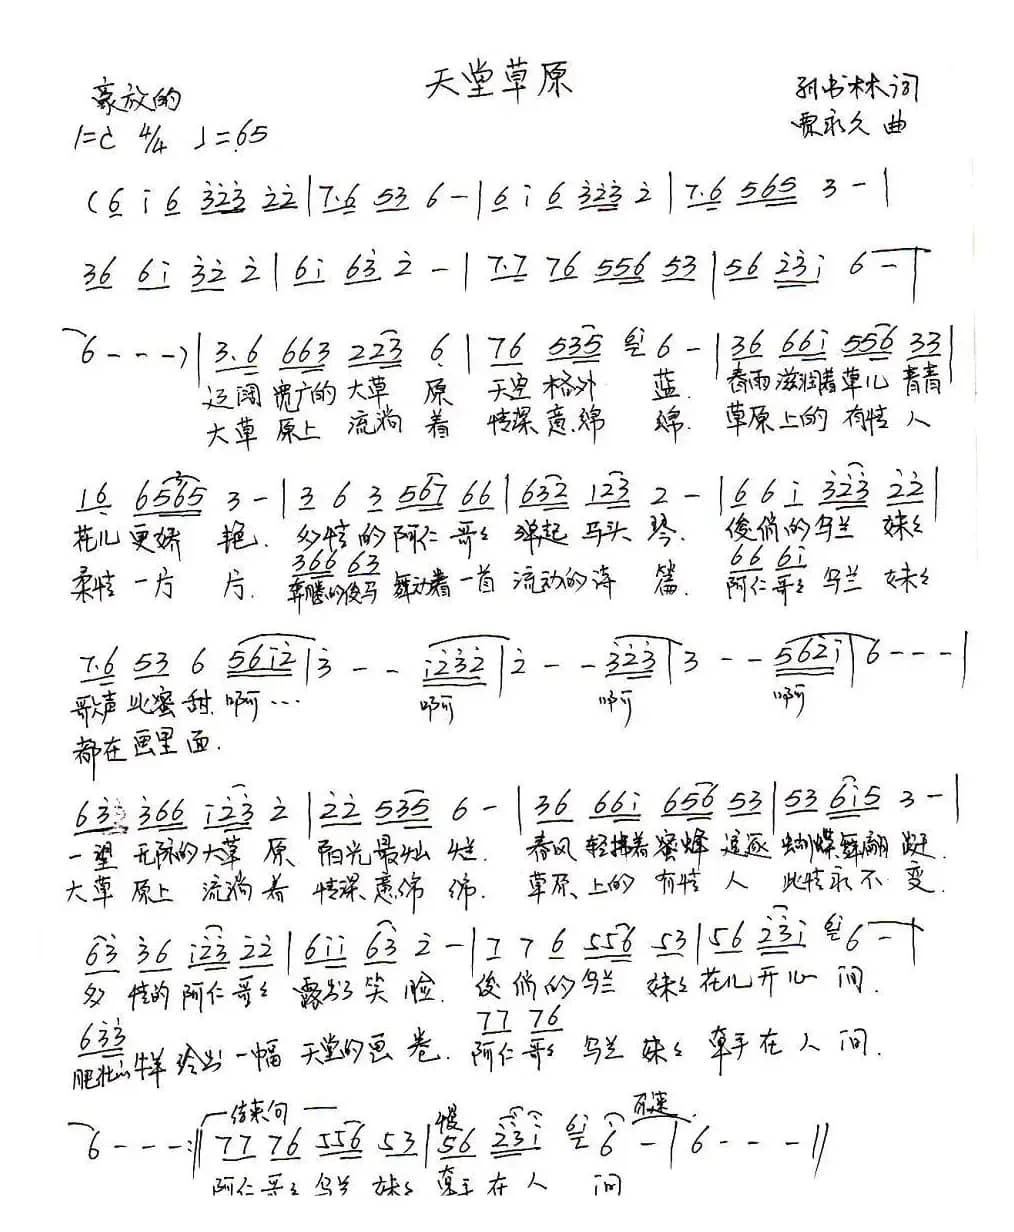 天堂草原
豪放的
孙书林词
1=C 4/4 ♩=65
贾永久 曲
(6 i 6 323 22|7·6 53 6 -|6 i 6 323 2|7·6 565 3 -|
36 6i 32 2|6i 63 2 -|7·7 76 556 53|56 23i 6 -|
6 - - -)|3·6 663 223 6|76 535 6i 6 -|36 66i 556 33|
辽阔宽广的大草 原 天空格外 蓝. 春雨滋润着草儿青青
大草原上 流淌着 情深意绵 绵. 草原上的有情人
16 6565 3 -|3 6 3 567 66|632 123 2 -|6 6 i 323 22|
花儿更娇 艳. 多情的阿仁哥々 弹起马头 琴. 俊俏的乌兰 妹々
366 63 66 6i
柔情一片 片. 奔腾的俊马舞动着一首流动的诗 篇. 阿仁哥々乌兰 妹々
7·6 53 6 56i2|3 - - i232|2 - - 323|3 - - 562i|6 - - -|
歌声比蜜甜. 啊… 啊 啊 啊
都在画里面.
63 366 i23 2|22 535 6 -|36 66i 656 53|53 6i5 3 -|
一望无际的大草 原 阳光最灿 烂. 春风轻拂着蜜蜂追逐 蝴蝶舞翩跹.
大草原上 流淌着 情深意绵 绵. 草原上的有情人 此情永不 变.
63 36 i23 22|6ii 63 2 -|7 7 6 556 53|56 23i 6i 6 -|
多情的阿仁哥々 露出笑 脸. 俊俏的乌兰 妹々花儿开心 间.
633 77 76
肥壮的牛羊绘出一幅 天堂的画 卷. 阿仁哥々 乌兰 妹々 牵手在人 间.
结束句 慢
6 - - -:‖77 76 556 53|56 23i 6i 6 -|6 - - -‖
阿仁哥々 乌兰 妹々 牵手在人 间